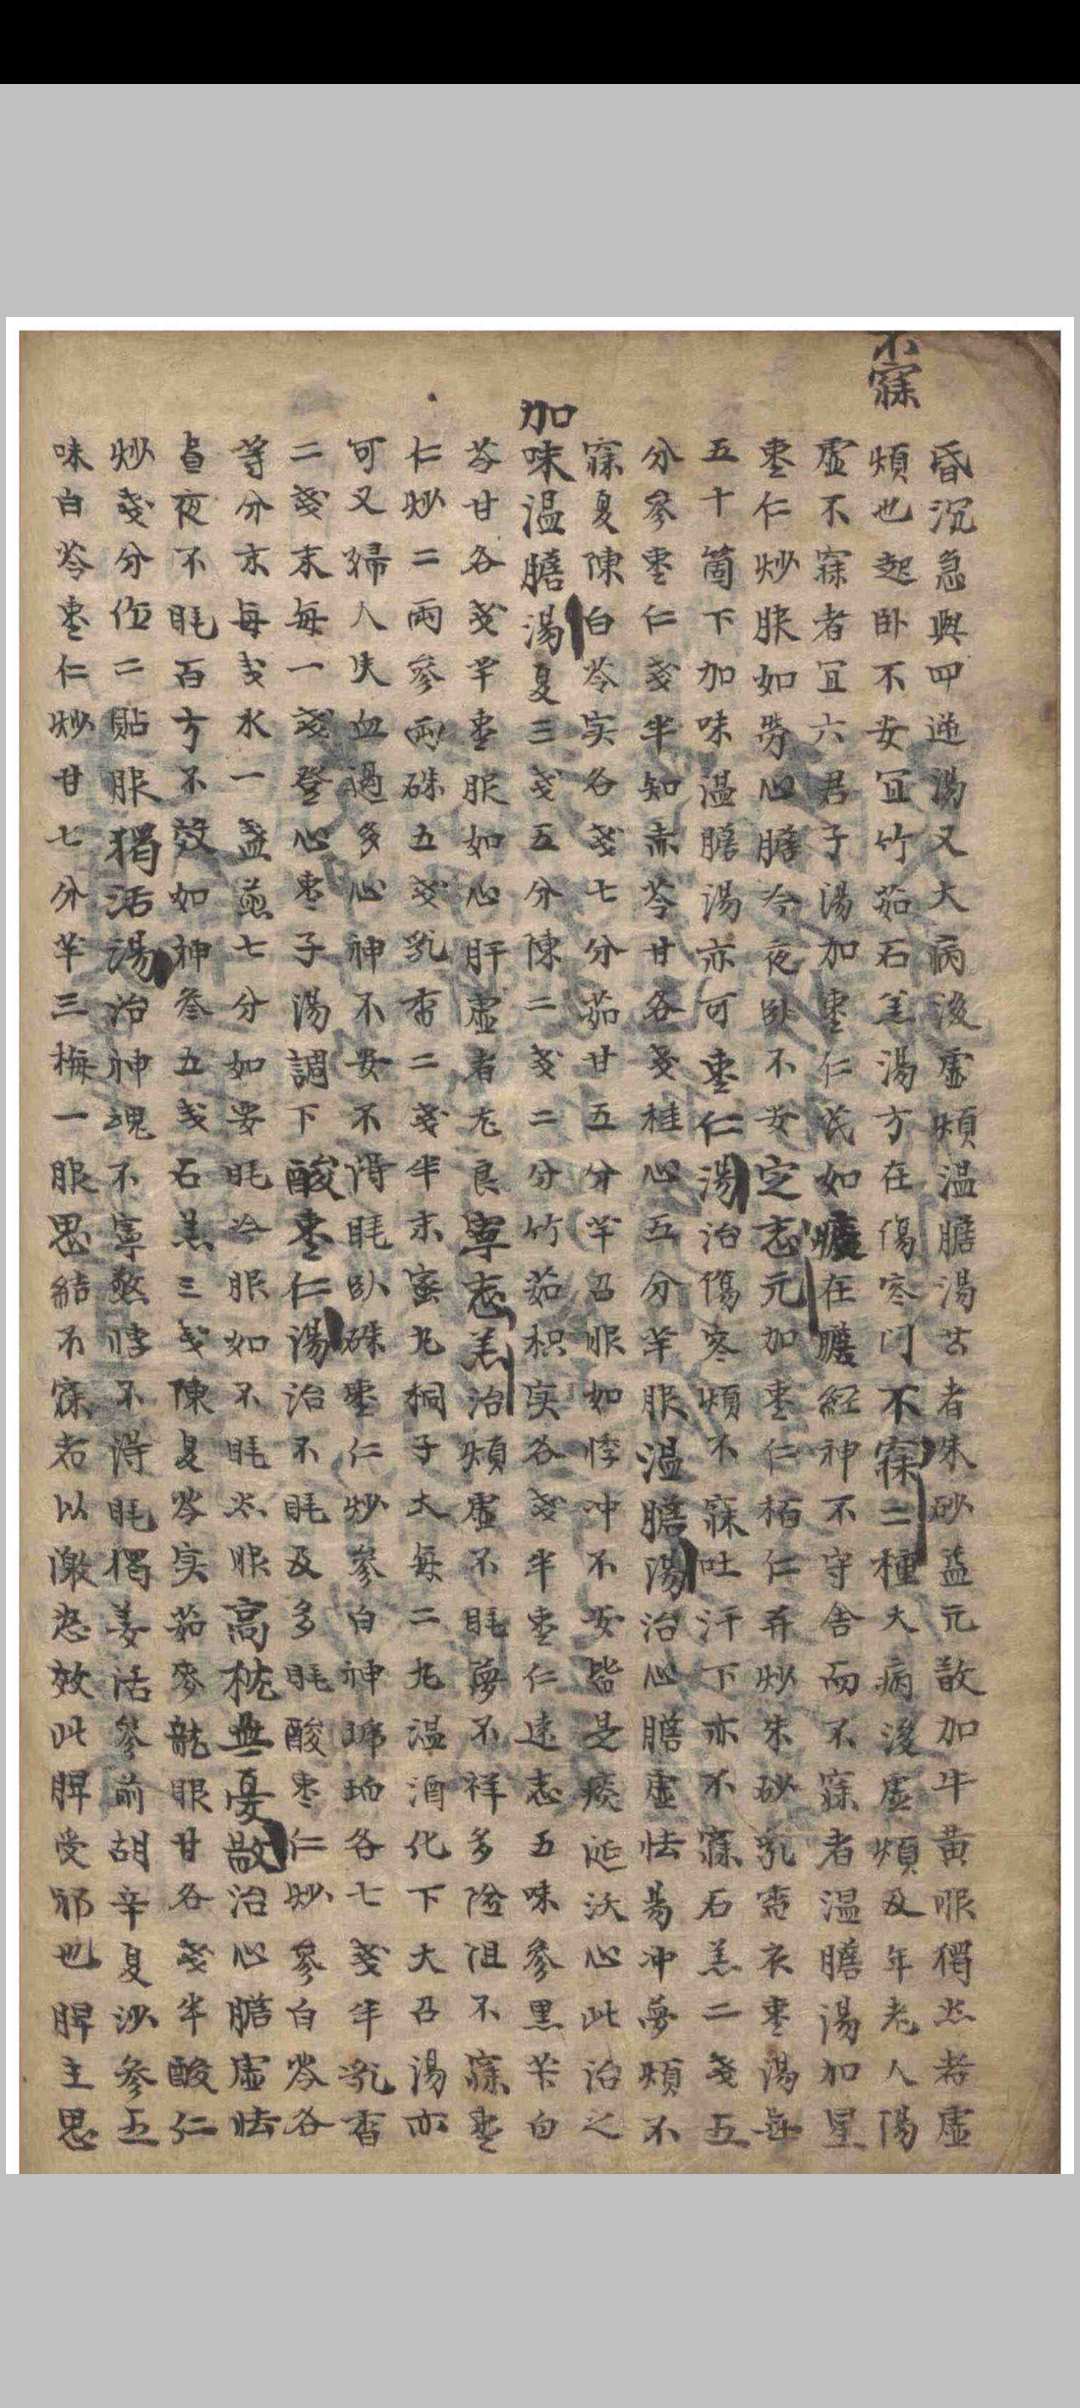 不寐
昏沉急與四逆湯又大病後虛煩温膽湯甚者朱砂益元散加牛黃服獨然者虛
煩也起卧不安宜竹茹石羔湯方在傷寒門不寐二種大病後虛煩及年老人陽
虛不寐者宜六君子湯加枣仁芪如在膽經神不守舍而不寐者温膽湯加星
枣仁炒服如勞心膽冷夜卧不安定志元加枣仁栢仁并炒朱砂乳香衣枣湯
五十箇下加味温膽湯亦可枣仁湯治傷寒煩不寐吐汗下亦不寐石羔二戔五
分參枣仁戔半知赤苓甘各戔桂心五分羊服温膽湯治心膽虛怯易冲夢煩不
寐夏陳白苓实各戔七分茹甘五分羊召服如悸冲不安皆是痰涎沃心此治之
加味温膽湯夏三戔五分陳二戔二分竹茹枳实各戔半枣仁遠志五味參黑苄白
苓甘各戔羊枣服如心肝虛者尤良寧志羔治煩虛不眊夢不祥多險阻不寐枣
仁炒二兩參兩硃五戔乳香二戔半末蜜丸桐子大每二丸温酒化下大召湯亦
可又婦人失血過多心神不安不得眊卧硃枣仁炒參白神琥珀各七戔半乳香
二戔末每一戔登心枣子湯調下酸枣仁湯治不眊及多眊酸枣仁炒參白苓各
等分末每戔水一盞煎七分如要眊冷服如不眊㶡服高枕無憂散治心膽虛怯
晝夜不眊百方不效如神參五戔石羔三戔陳夏苓实茹麥龍眼甘各戔半酸仁
炒戔分作二貼服獨活湯治神魂不寧驚悸不得眊獨姜活參前胡辛夏沙參五
味白苓枣仁炒甘七分羊三梅一服思結不寐者以激怒效此脾受邪也脾主思